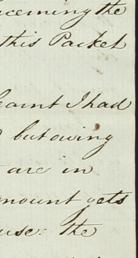 ncerning the
this Packet
learnt I had
but owing
are in
mount gets
use: the